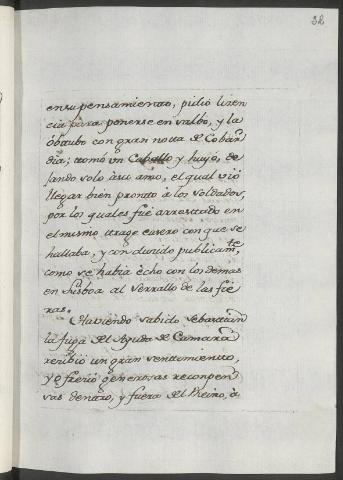 32
en su pensamiento, pidió licen
cia para ponerse en salbo, y la
óbtubo con gran nota de Cobar
dia; tomó un Caballo y huyó, de
jando solo à su amo, el qual vió
llegar bien pronto à los soldados,
por los quales fué arrestado en
el mismo trage casero con que se
hallaba, y conducido publicam.te
como se habia echo con los demas
en Lisboa al Serrallo de las fie
ras.
Haviendo sabido Sebastian
la fuga del Ayuda de Camara
recibió un gran sentimiento,
y ofreció generosas reconpen
sas dentro, y fuera del Reino, à